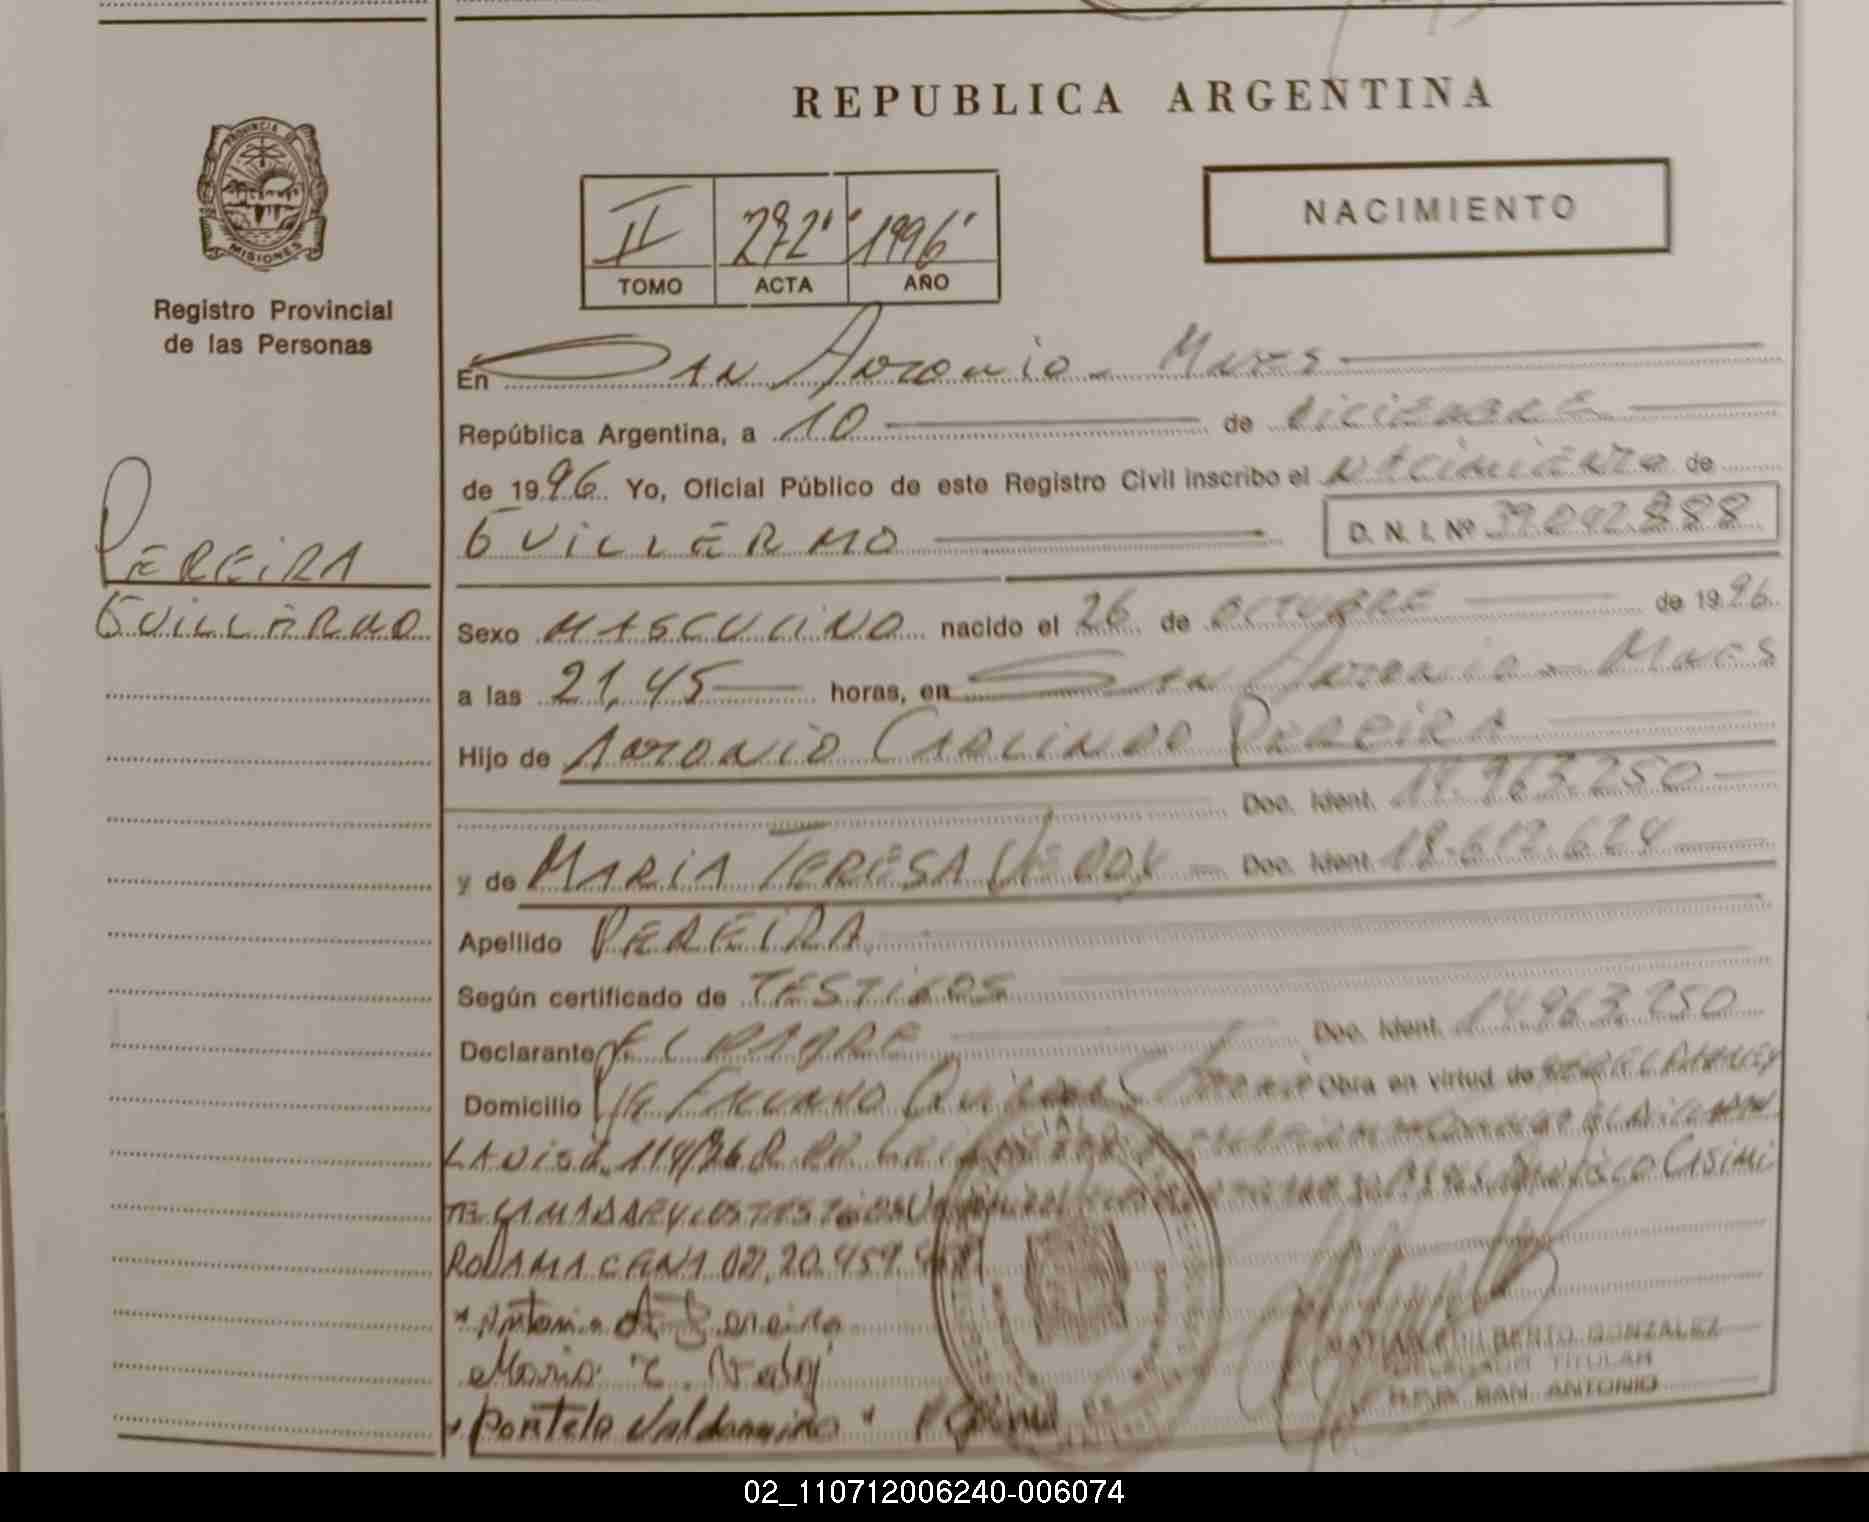 REPUBLICA ARGENTINA
PROVINCIA DE
MISIONES
Registro Provincial
de las Personas
II 272 1996
TOMO ACTA AÑO
NACIMIENTO
En San Antonio - Mnes
República Argentina, a 10 de Diciembre
de 1996 Yo, Oficial Público de este Registro Civil inscribo el nacimiento de
GUILLERMO D.N.I. Nº 39.042.888
PEREIRA
GUILLERMO
Sexo MASCULINO nacido el 26 de OCTUBRE de 1996
a las 21,45 horas, en San Antonio - Mnes
Hijo de Antonio Carlindo Pereira
Doc. Ident. 14.963.250
y de MARIA TERESA Vedoy Doc. Ident. 18.612.624
Apellido PEREIRA
Según certificado de TESTIGOS
Declarante EL PADRE Doc. Ident. 14.963.250
Domicilio Obra en virtud de
Casimi
RO 20.959
Antonio Pereira
Maria T. Vedoy
Portela Valdomiro
GILBERTO GONZALEZ
DELEGADO TITULAR
R.P.P. SAN ANTONIO
02_110712006240-006074